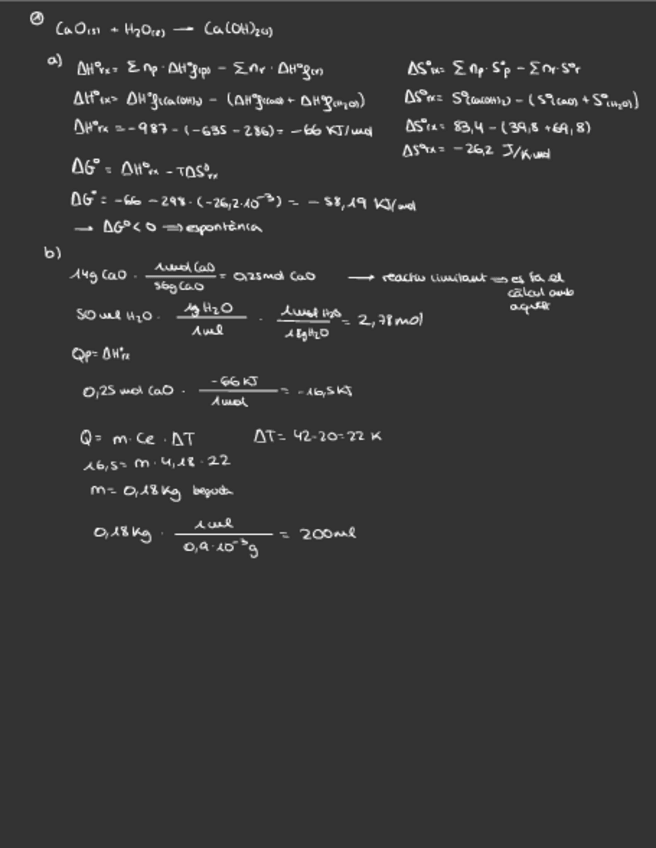 ② CaO(s) + H₂O(l) → Ca(OH)₂(s)
a) ΔH°rx = Σ np · ΔH°f(p) − Σ nr · ΔH°f(r)
ΔH°rx = ΔH°f(Ca(OH)₂) − (ΔH°f(CaO) + ΔH°f(H₂O))
ΔH°rx = −987 − (−635 − 286) = −66 KJ/mol
ΔS°rx = Σ np · S°p − Σ nr · S°r
ΔS°rx = S°(Ca(OH)₂) − (S°(CaO) + S°(H₂O))
ΔS°rx = 83,4 − (39,8 + 69,8)
ΔS°rx = −26,2 J/K·mol
ΔG° = ΔH°rx − TΔS°rx
ΔG° = −66 − 298 · (−26,2·10⁻³) = −58,19 KJ/mol
→ ΔG° < 0 ⇒ espontània
b)
14g CaO · 1 mol CaO / 56g CaO = 0,25 mol CaO → reactiu limitant ⇒ es fa el
càlcul amb
aquest
50 ml H₂O · 1g H₂O / 1 ml · 1 mol H₂O / 18g H₂O = 2,78 mol
Qp = ΔH°rx
0,25 mol CaO · −66 KJ / 1 mol = −16,5 KJ
Q = m · Ce · ΔT ΔT = 42−20 = 22 K
16,5 = m · 4,18 · 22
m = 0,18 Kg beguda
0,18 Kg · 1 ml / 0,9·10⁻³ g = 200 ml